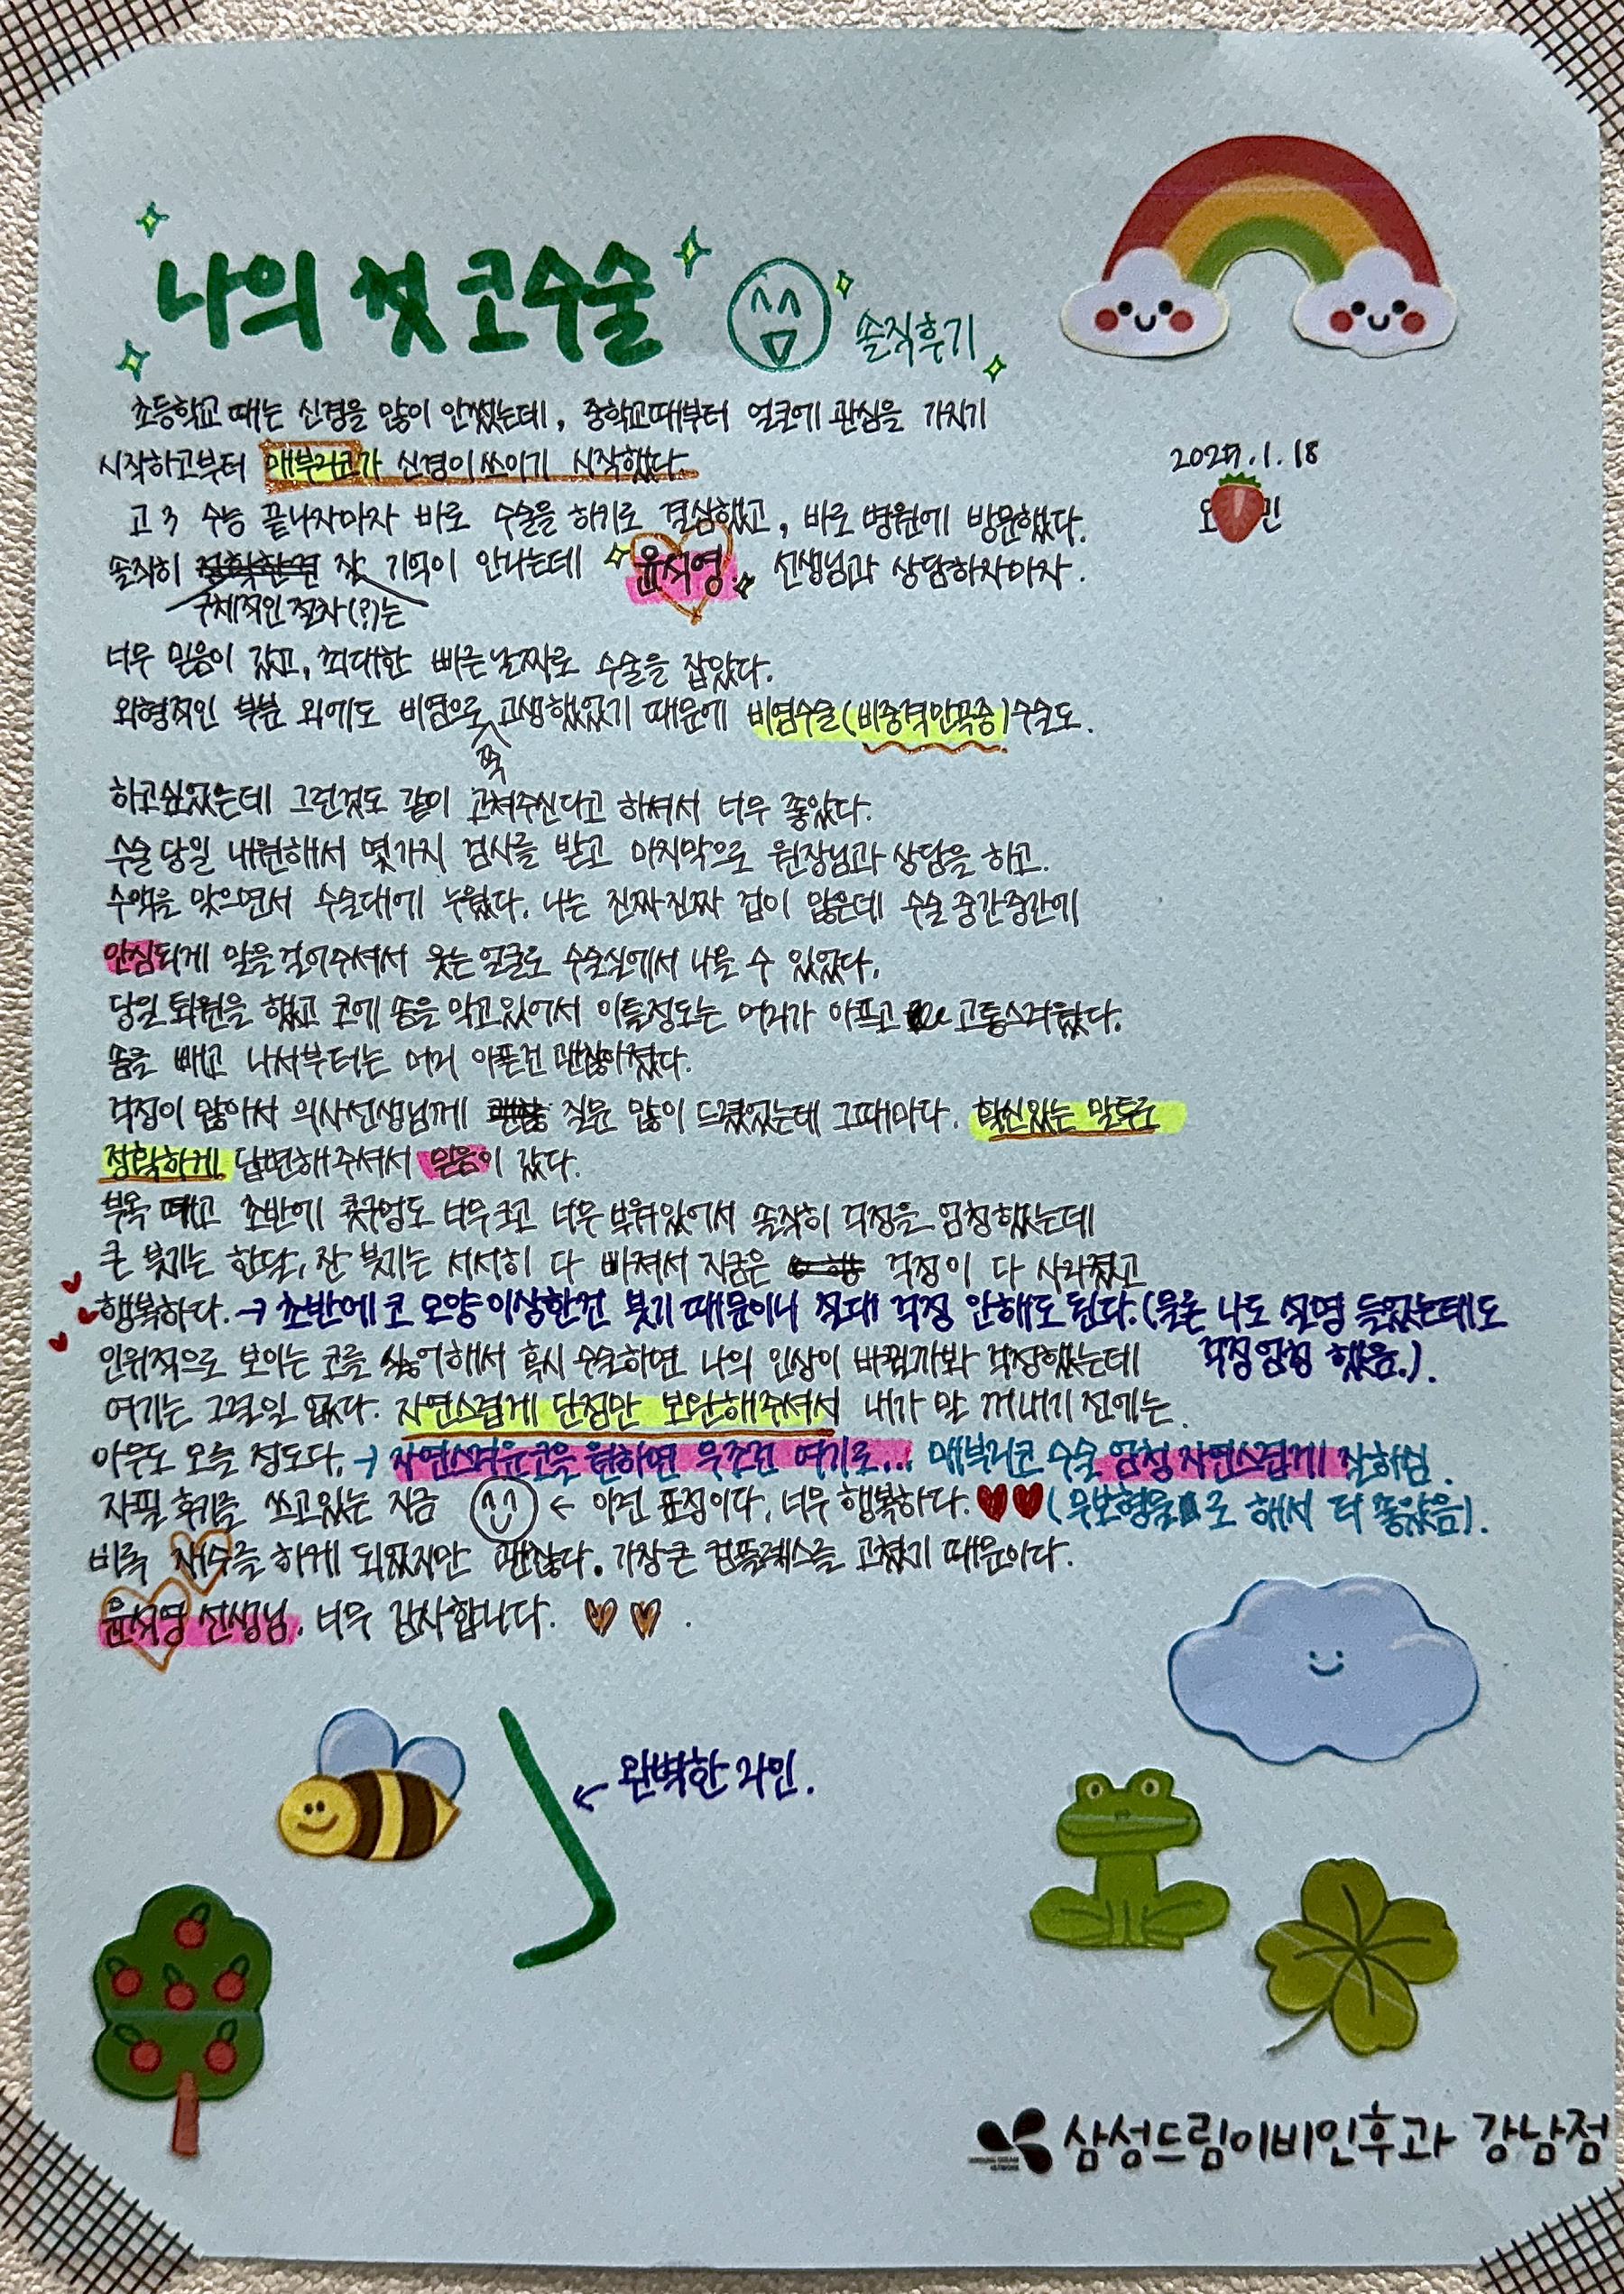 나의 첫 코수술
솔직후기
초등학교 때는 신경을 많이 안썼는데, 중학교때부터 얼굴에 관심을 가지기
시작하고부터 매부리코가 신경이쓰이기 시작했다.
2025.1.18
오 민
고3 수능 끝나자마자 바로 수술을 하기로 결심했고, 바로 병원에 방문했다.
솔직히 잘 기억이 안나는데 윤석영 선생님과 상담하자마자.
구체적인 절차(?)는
너무 믿음이 갔고, 최대한 빠른날짜로 수술을 잡았다.
외형적인 부분 외에도 비염으로 고생했었기 때문에 비염수술(비중격만곡증)수술도.
쭉
하고싶었는데 그런것도 같이 고쳐주신다고 하셔서 너무 좋았다.
수술 당일 내원해서 몇가지 검사를 받고 마지막으로 원장님과 상담을 하고.
수액을 맞으면서 수술대에 누웠다. 나는 진짜진짜 겁이 많은데 수술 중간중간에
안심되게 말을걸어주셔서 웃는 얼굴로 수술실에서 나올 수 있었다.
당일 퇴원을 했고 코에 솜을 막고있어서 이틀정도는 머리가 아프고 고통스러웠다.
솜을 빼고 나서부터는 머리 아픈건 괜찮아졌다.
걱정이 많아서 의사선생님께 질문 많이 드렸었는데 그때마다. 확신있는 말투로
정확하게 답변해주셔서 믿음이 갔다.
부목 떼고 초반에 콧구멍도 너무크고 너무 부워있어서 솔직히 걱정을 엄청했는데
큰 붓기는 한달, 잔 붓기는 서서히 다 빠져서 지금은 걱정이 다 사라졌고
행복하다. → 초반에 코 모양 이상한건 붓기 때문이니 절대 걱정 안해도 된다.(물론 나도 설명 들었는데도
걱정엄청 했음.).
인위적으로 보이는 코를 싫어해서 혹시 수술하면 나의 인상이 바뀔까봐 걱정했는데
여기는 그럴일 없다. 자연스럽게 단점만 보완해주셔서 내가 말 꺼내기 전에는.
아무도 모를 정도다. → 자연스러운코를 원하면 무조건 여기로... 매부리코 수술 엄청 자연스럽게 잘하심.
자필 후기를 쓰고있는 지금 ← 이런 표정이다. 너무 행복하다. (무보형물로 해서 더 좋았음).
비록 재수를 하게 되었지만 괜찮다. 가장큰 컴플렉스를 고쳤기 때문이다.
윤석영 선생님. 너무 감사합니다.
← 완벽한 라인.
삼성드림이비인후과 강남점